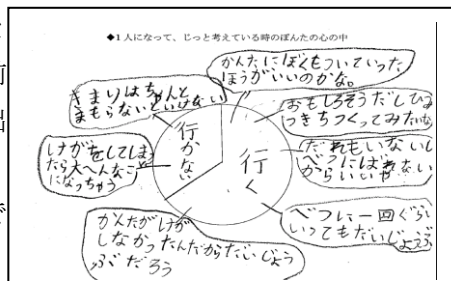 ◆1人になって、じっと考えている時のぽんたの心の中
かんたにぼくもついていった
ほうがいいのかな。
きまりはちゃんと
まもらないといけない
おもしろそうだしひみ
つきちつくってみたいな
行かない
行く
だれもいないし
からいいや
けがをしてしまっ
たら大へんなことに
になっちゃう
べつに一回ぐらい
いってもだいじょうぶ
かんたがけが
しなかったんだからだいじょう
ぶだろう